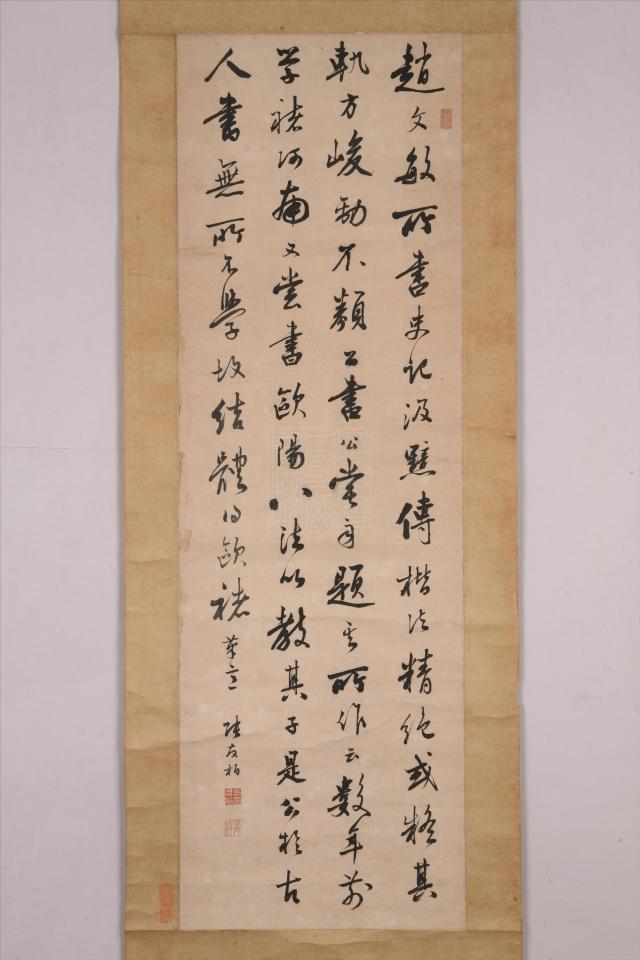 趙文敏所書史記汲黯傳楷法精絕或疑其
軌方峻勁不類公書公嘗自題其所作云數年前
学褚河南又嘗書歐陽八法以教其子是公於古
人書無所不學故結體得歐褚筆意 陸友柏